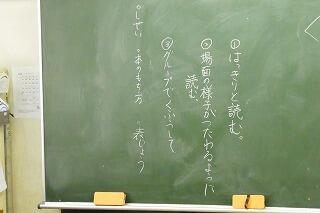 ①はっきりと読む。
②場面の様子がつたわるように
読む
③グループでくふうして
○しせい ○本のもち方 ○表じょう